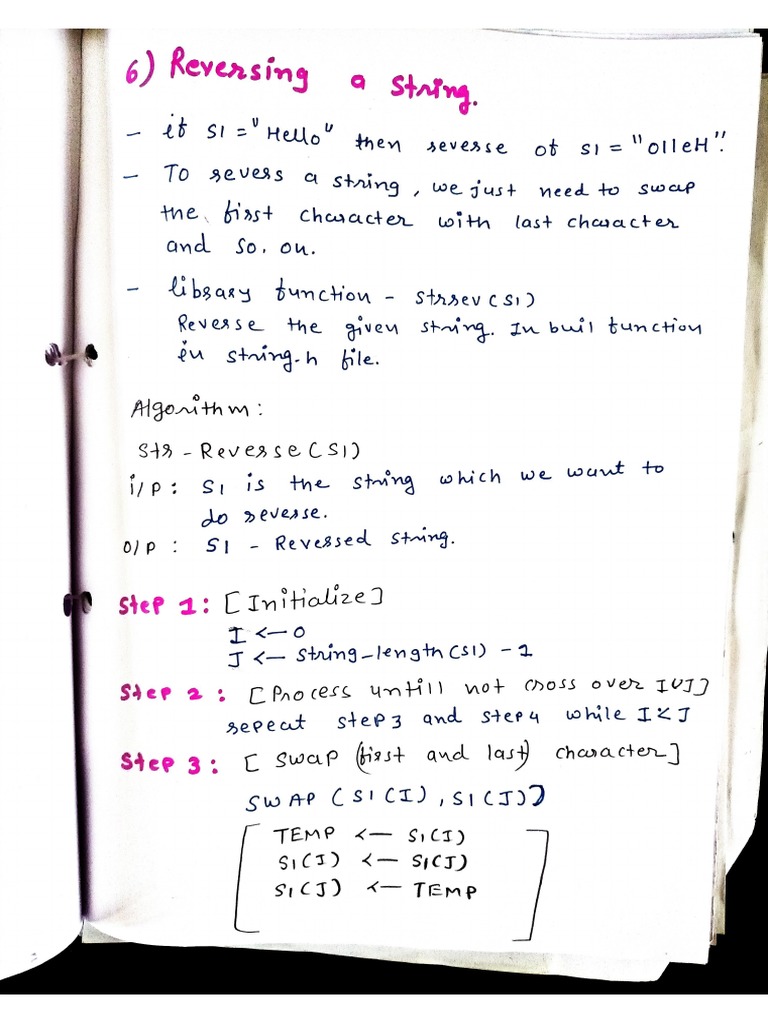 6) Reversing a string.
- if S1 = "Hello" then reverse of S1 = "olleH".
- To revers a string, we just need to swap
the first character with last character
and so. on.
- library function - strrev(S1)
Reverse the given string. In buil function
in string.h file.
Algorithm:
Str-Reverse(S1)
i/p: S1 is the string which we want to
do reverse.
o/p: S1 - Reversed string.
Step 1: [Initialize]
I <- 0
J <- string-length(S1) - 1
Step 2: [Process untill not cross over I & J]
repeat step3 and step4 while I < J
Step 3: [Swap (first and last) character]
SWAP (S1(I), S1(J))
TEMP <- S1(I)
S1(I) <- S1(J)
S1(J) <- TEMP